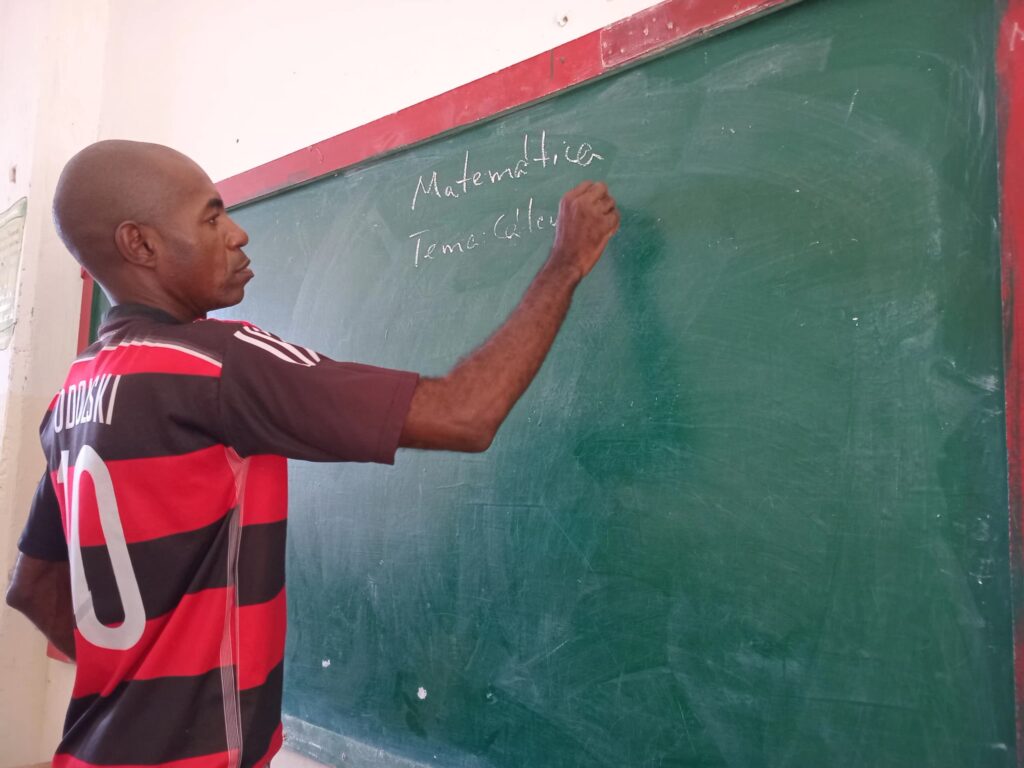 Matemática
Tema: Cálcu
PODOLSKI
10